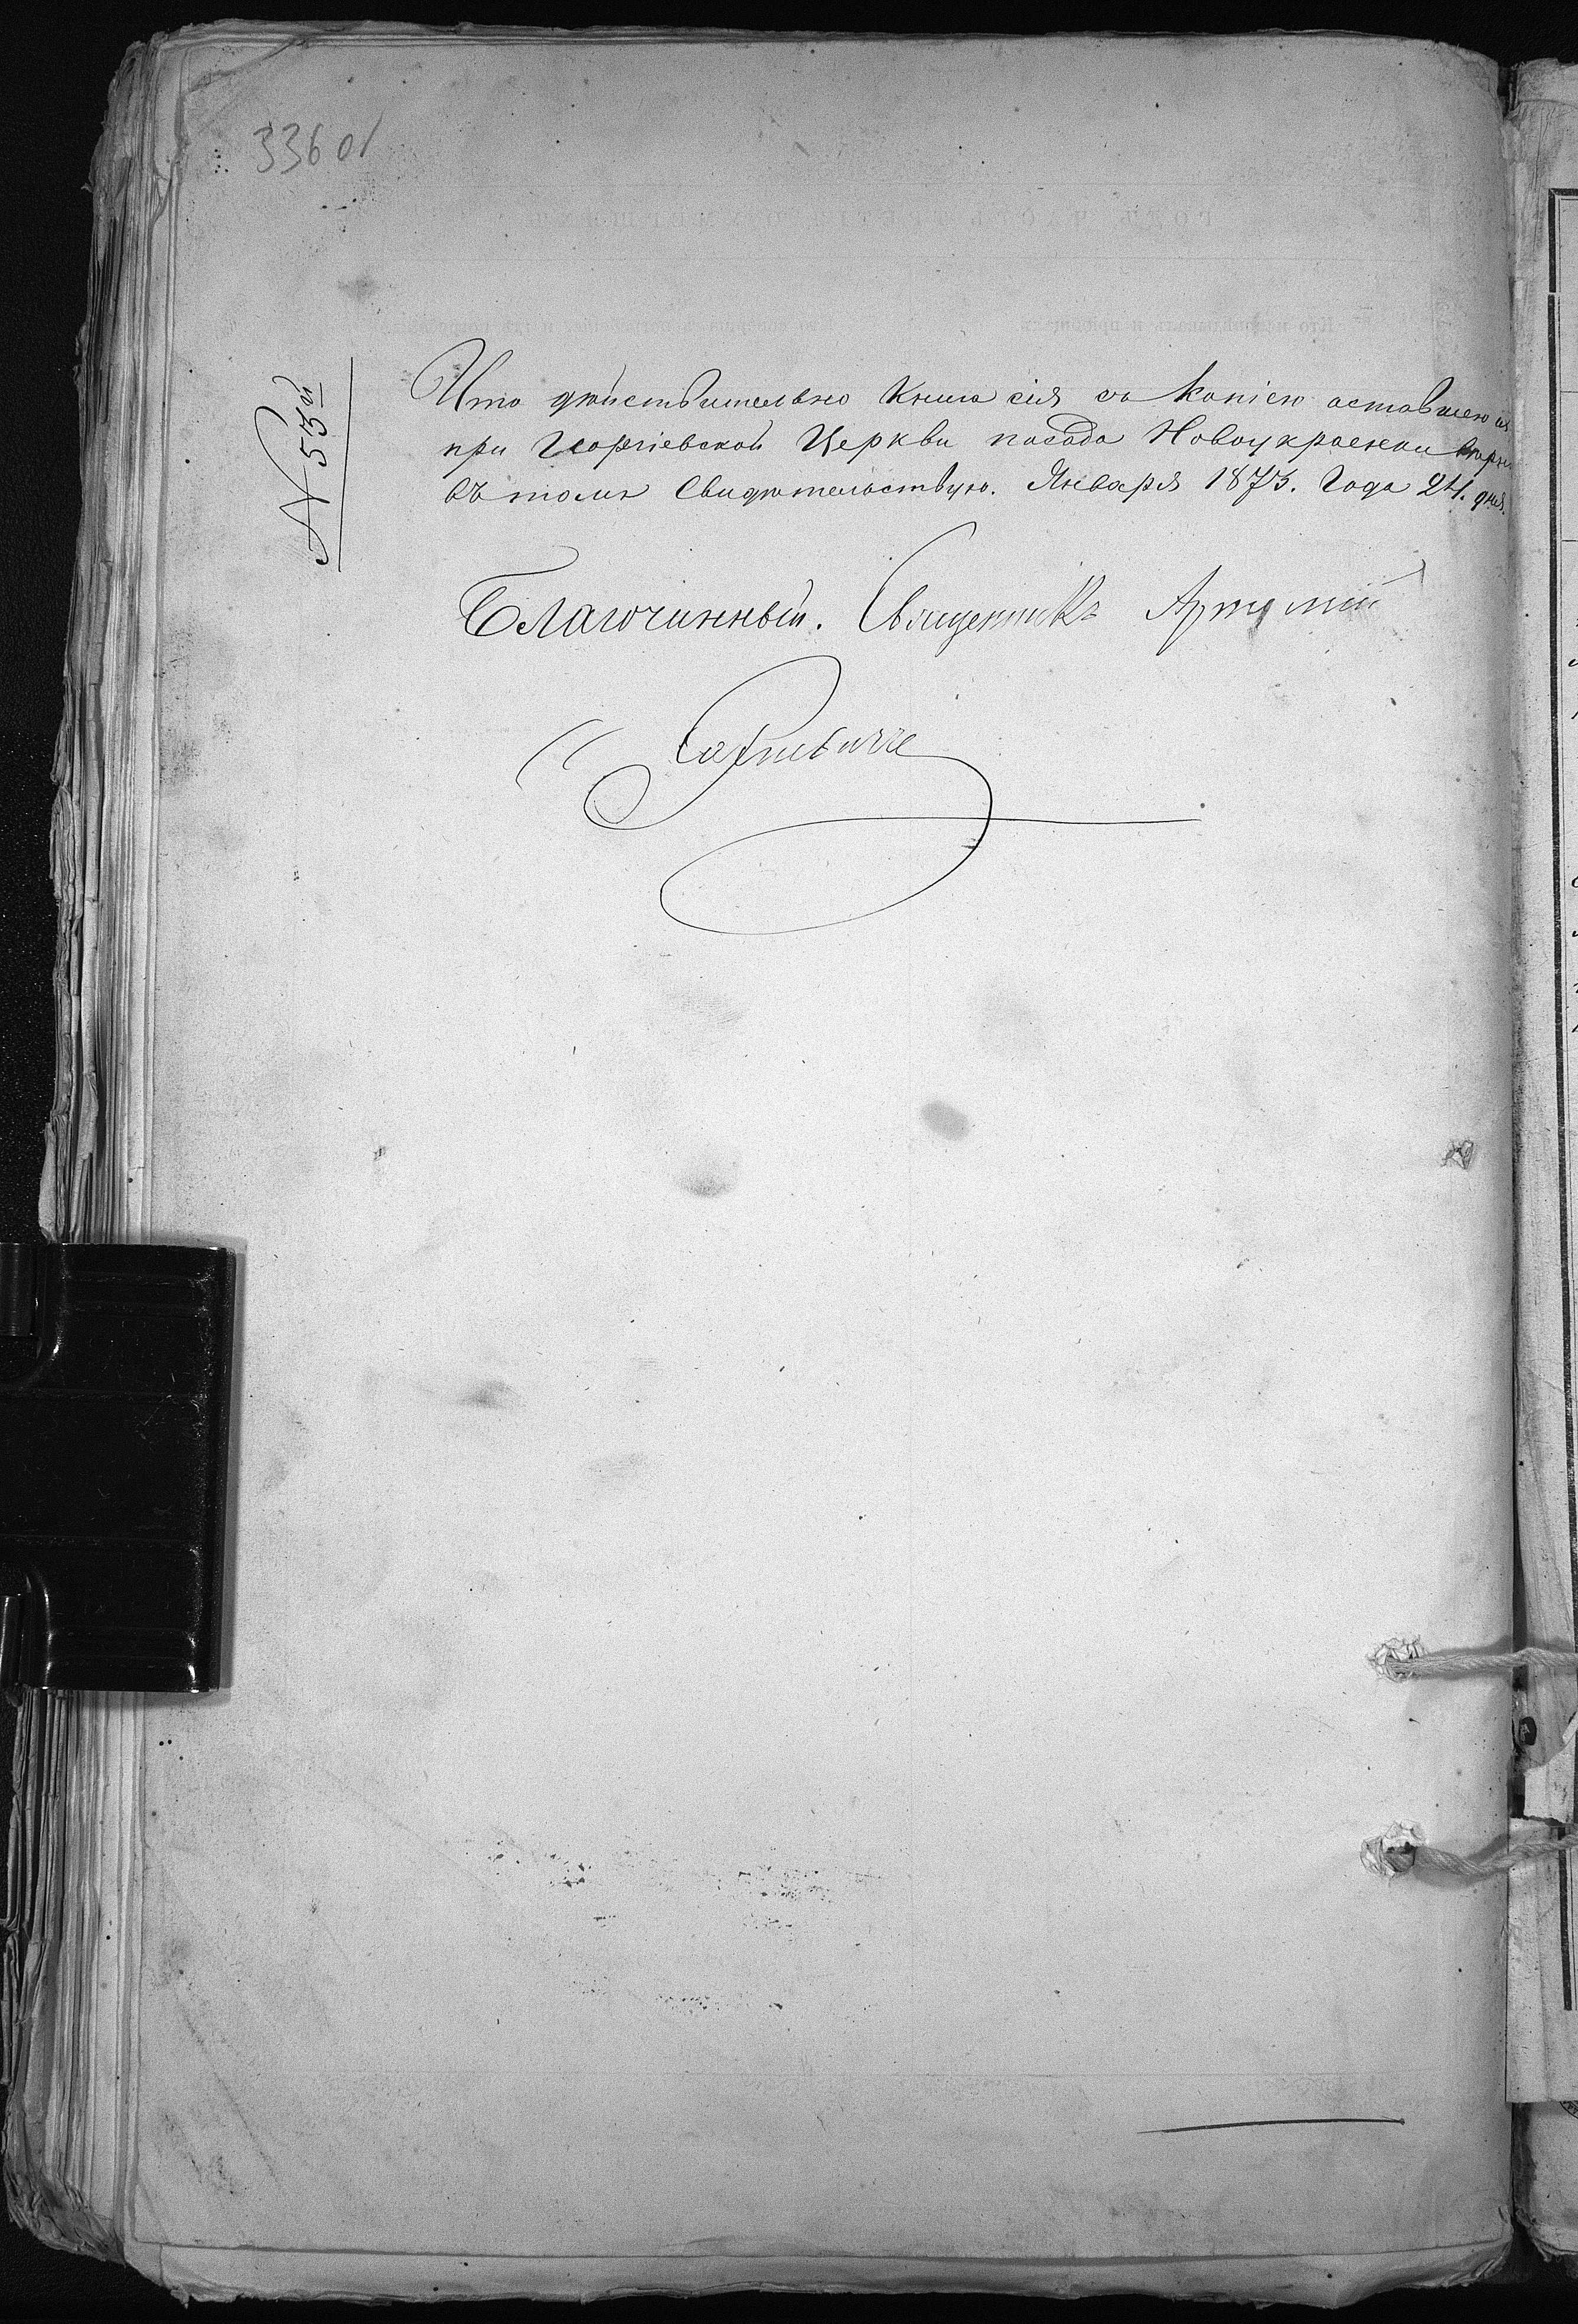 336 об
№ 53й
Что действительно Книга сія съ Копіею оставшеюся
при Георгіевской Церкви посада Новоукраенки вѣрна
въ томъ Свидѣтельствую. Января 1873. Года 24. дня.
Благочинный. Священникъ Артемій